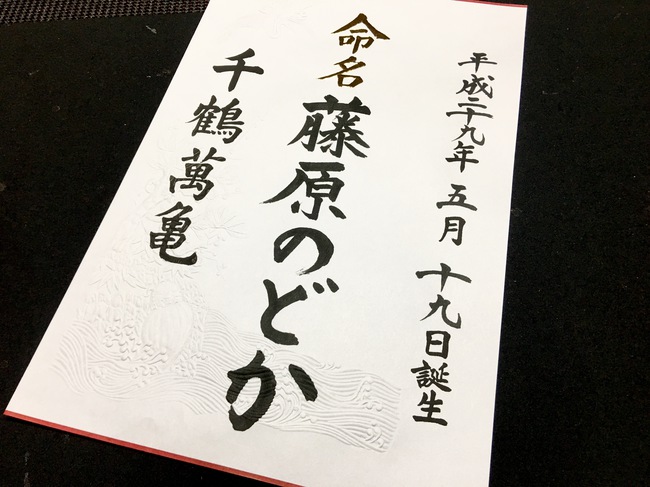 平成二十九年 五月 十九日誕生
命名 藤原のどか
千鶴萬亀